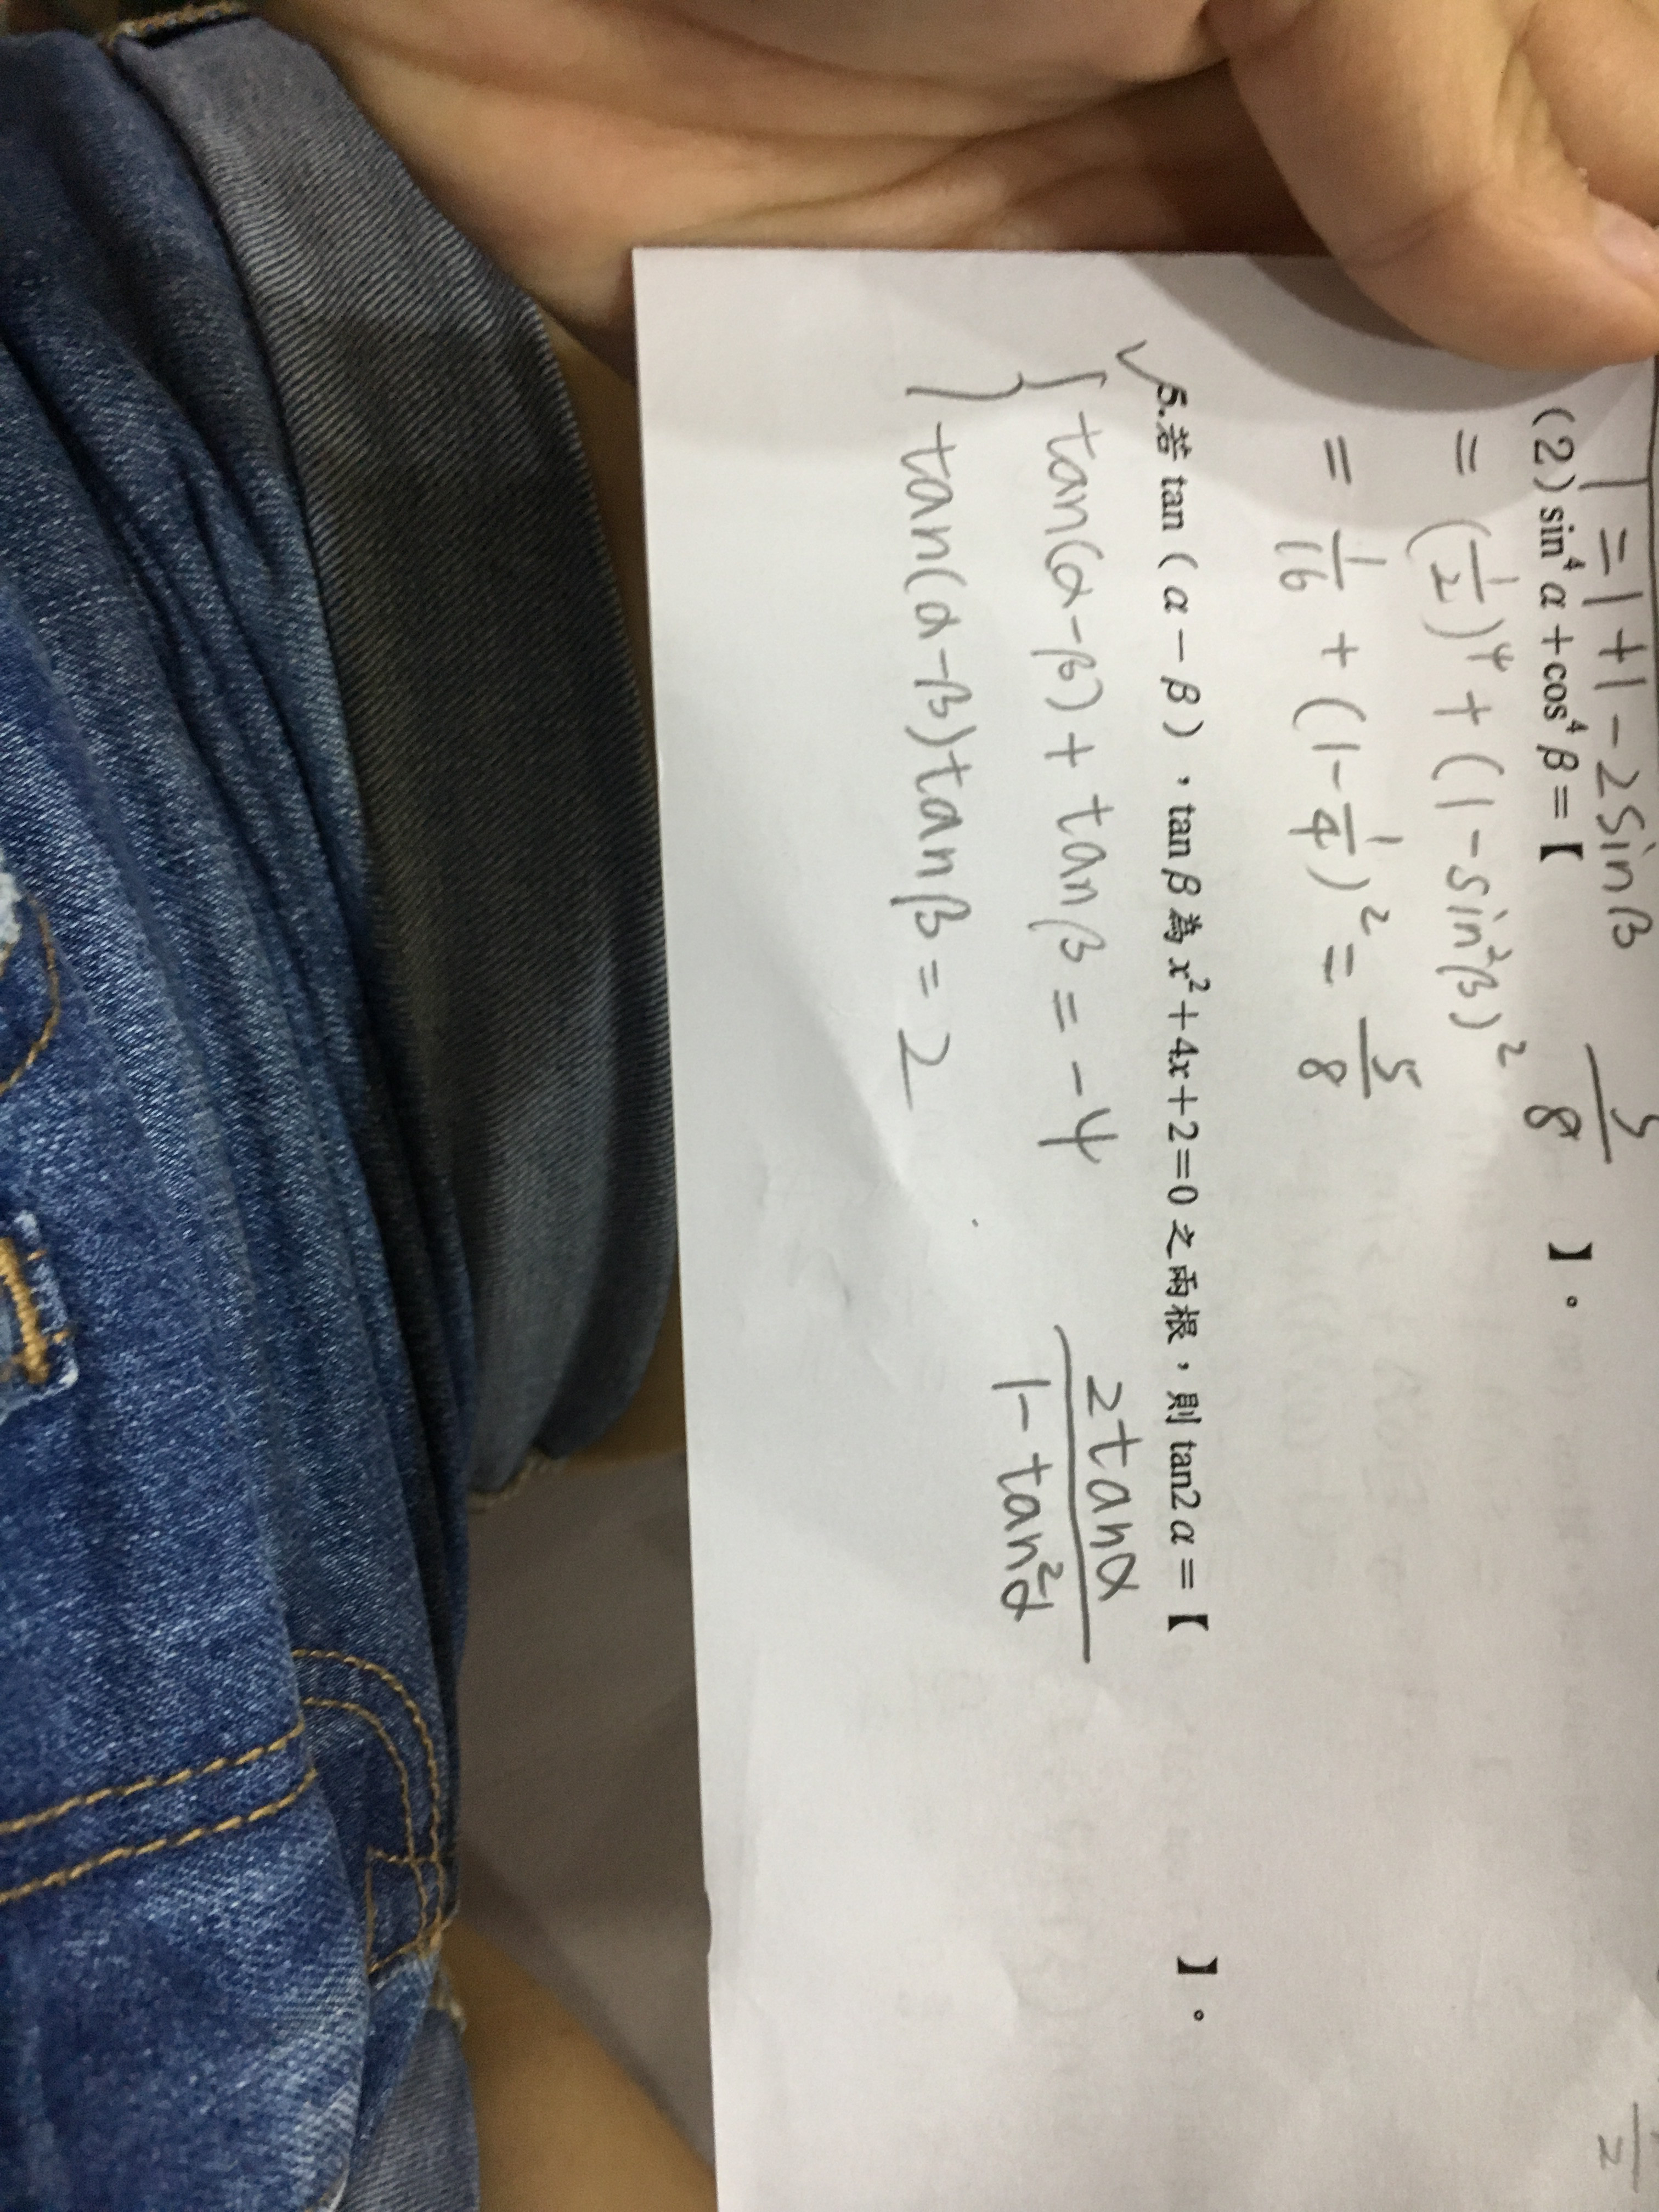 1 = 1 + 1 - 2sinβ
(2) sin⁴α+cos⁴β=【 5/8 】。
= (1/2)⁴ + (1 - sin²β)²
= 1/16 + (1 - 1/4)² = 5/8
✓5.若 tan(α-β),tanβ 為 x²+4x+2=0 之兩根,則 tan2α=【 】。
{ tan(α-β) + tanβ = -4
tan(α-β)tanβ = 2
2tanα / 1 - tan²α